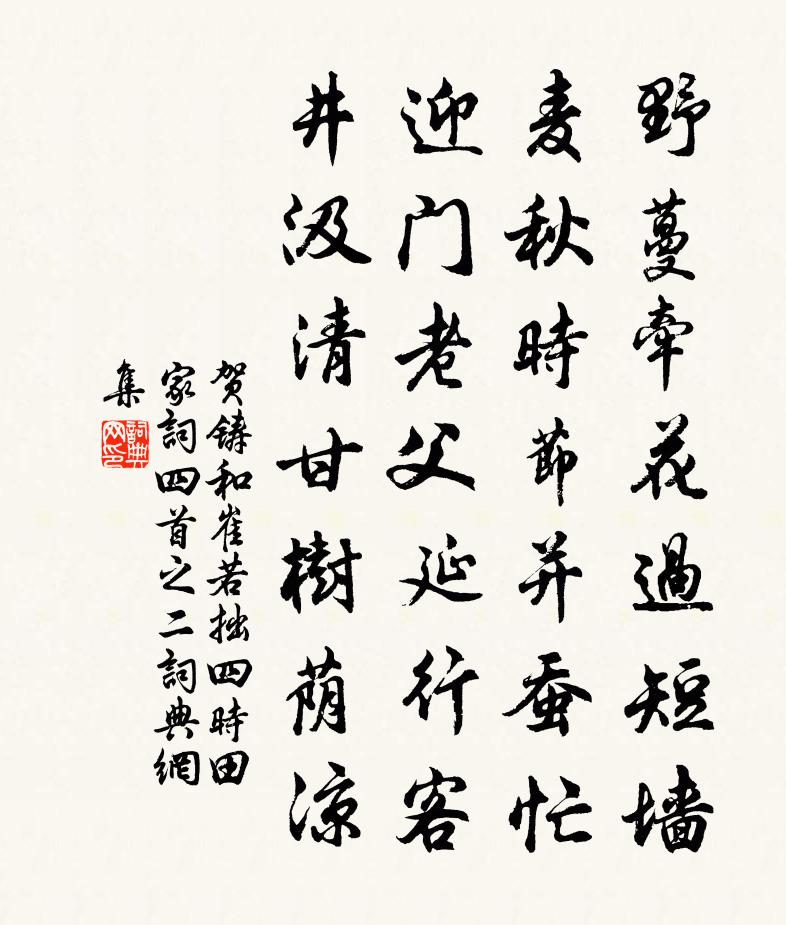 野蔓牵花過短墙
麦秋時節并蚕忙
迎门老父延行客
井汲清甘樹荫凉
贺铸和崔若拙四時田
家詞四首之二詞典網
集
詞典网印